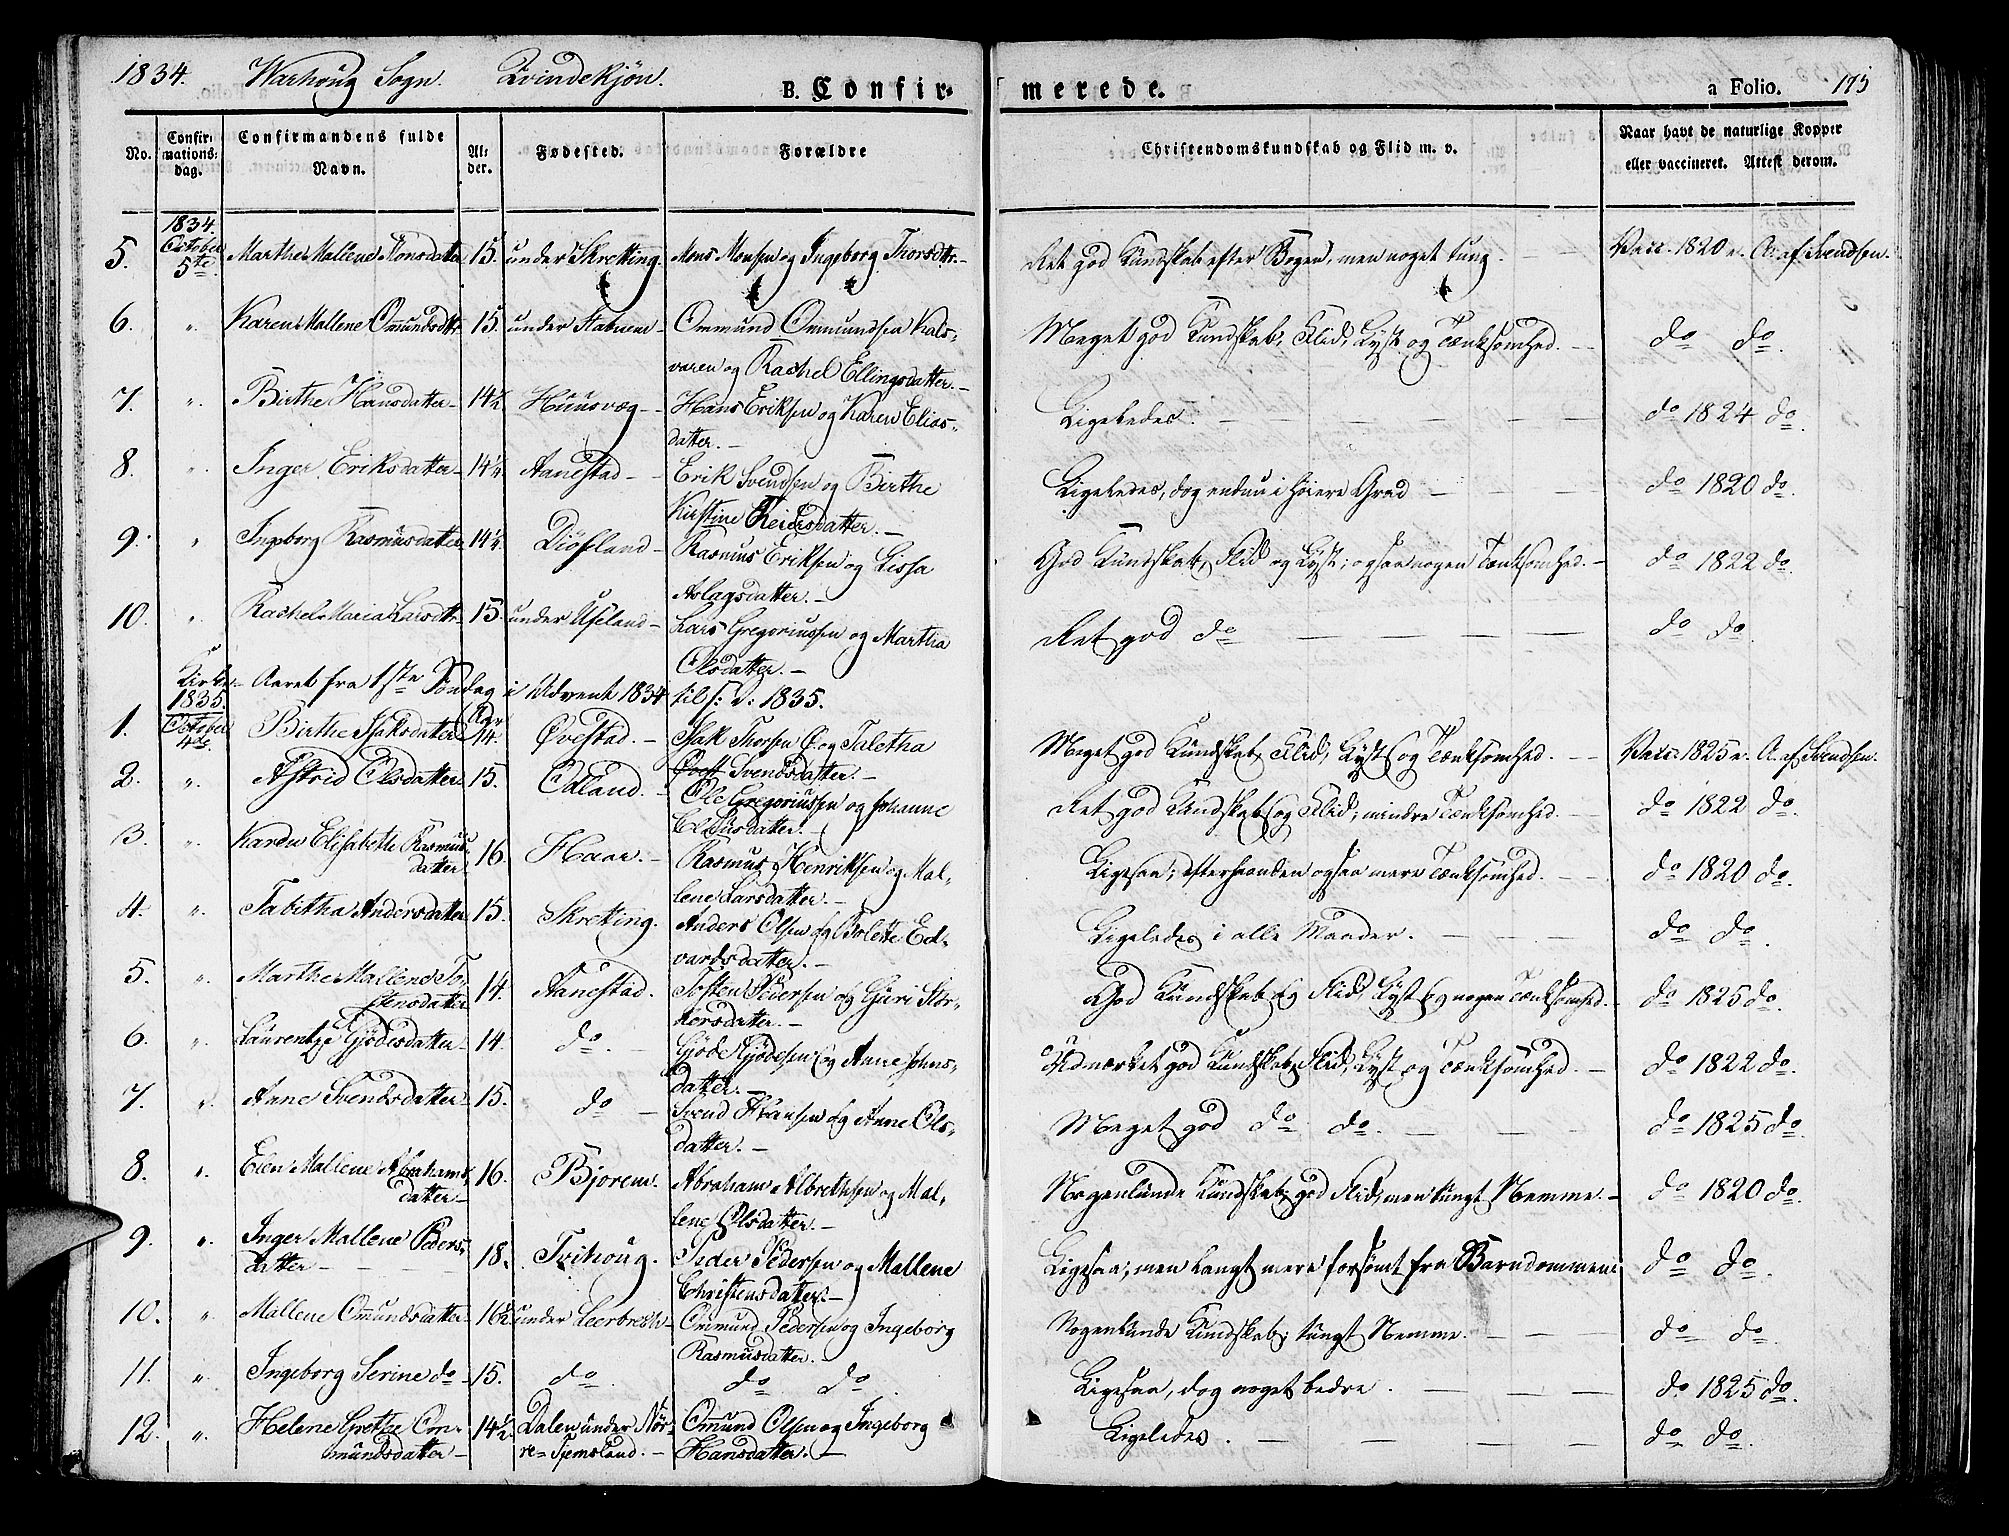 1834. Warhoug Sogn. Qvindekjøn. B. Confir- merede. a Folio. 175
No. Confirmations-dag. Confirmandens fulde Navn. Alder. Fødested. Forældre Christendomskundskab og Flid m. v. Naar havt de naturlige Kopper eller vaccineret. Attest derom.
1834.
5. October 5te Marthe Mallene Monsdatter 15. under Skretting. Mons Monsen og Ingeborg Thorsdtr. – Ret god Kundskab efter Bogen, men noget tung. – Vacc. 1820 e. A. af Svendsen.
6. " Karen Mallene Ommundsdtr 15. under Ommund Ommundsen Kals-
varen og Rachel Ellingsdatter. – Meget god Kundskab, Flid, Lyst og Tænksomhed. – do do.
7. " Birthe Hansdatter – 14½ Huusvæg – Hans Eriksen og Karen Elias-
datter. – Ligeledes. – do 1824 do.
8. " Inger Eriksdatter – 14½ Aanestad – Erik Svendsen og Birthe
Kirstine Reiersdatter. – Ligeledes, dog endnu i høiere Grad – do 1820 do.
9. " Ingeborg Rasmusdatter 14½ Diösland – Rasmus Eriksen og Lissa
Aslagsdatter. – God Kundskab, Flid og Lyst; ogsaa nogen Tænksomhed. – do 1822 do.
10. " Rachel Maria Larsdtr. 15. under Useland – Lars Gregoriussen og Martha
Olsdatter. – Ret god do – do do.
Kirke-Aaret fra 1ste Söndag i Advent 1834 til s: D: 1835.
1835.
1. October 4de. Birthe Isaksdatter Aar 14. Øvestad. – Isak Thorsen Ø. og Taletha
Svendsdatter. – Meget god Kundskab, Flid, Lyst og Tænksomhed. – Vacc. 1825 e. A. af Svendsen.
2. " Astrid Olsdatter 15. Odland. – Ole Gregoriussen og Johanne
datter. – Ret god Kundskab og Flid; mindre Tænksomhed. do 1822 do.
3. " Karen Elisabethe Rasmus-
datter 16. Haar. – Rasmus Henriksen og Mal-
lene Larsdatter. – Ligesaa; efterhaanden ogsaa mere Tænksomhed. – do 1820 do.
4. " Tabitha Andersdatter 15. Skretting. Anders Olsen og Bolette Ed-
vardsdatter. – Ligeledes i alle Maader. – do do.
5. " Marthe Mallene To-
stensdatter 14. Aanestad. Tosten Pedersen og Guri Stor-
kersdatter. – God Kundskab og Flid, Lyst og nogen Tænksomhed. – do 1825 do.
6. " Laurentze Gjödesdatter 14. do. – Gjöde Gjödesen og Anne Johns-
datter. – Udmærket god Kundskab, Flid, Lyst og Tænksomhed. – do 1822 do.
7. " Anne Svendsdatter 15. do – Svend Hansen og Anne Ols-
datter. – Meget god do do. – do 1825 do.
8. " Elen Mallene Abrahams-
datter – 16. Bjorem. Abraham Albrethsen og Mal-
lene Olsdatter. – Nogenlunde Kundskab, god Flid, men tungt Nemme. – do 1820 do.
9. " Inger Mallene Peders-
datter – 18. Tvihoug. Peder Pedersen og Mallene
Christensdatter. – Ligesaa; men langt mere forsömt fra Barndommen do do.
10. " Mallene Omundsdatter 16½ under Leerbrekk – Ommund Pedersen og Ingeborg
Rasmusdatter. – Nogenlunde Kundskab; tungt Nemme. – do do.
11. " Ingeborg Serine do – 15. do do do. Ligesaa, dog noget bedre. – do 1825 do.
12. " Helene Grethe Om-
mundsdatter – 14½. Dalen under Nör-
re-Tjemsland. – Omund Olsen og Ingeborg
Hansdatter. – Ligeledes. – do do.